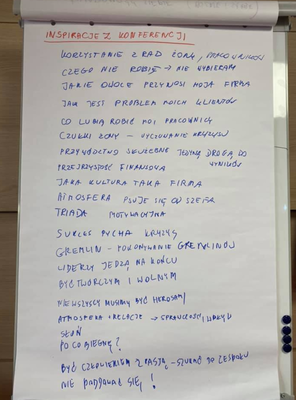 INSPIRACJE Z KONFERENCJI
KORZYSTANIE Z RAD ŻONY, PRACOWNIKÓW
CZEGO NIE ROBIĘ → NIE WYBIERAM
JAKIE OWOCE PRZYNOSI MOJA FIRMA
JAKI JEST PROBLEM MOICH KLIENTÓW
CO LUBIĄ ROBIĆ MOI PRACOWNICY
CZUJKI ŻONY - WYCZUWANIE KRYZYSU
PRZYWÓDZTWO SKUTECZNE JEDYNĄ DROGĄ DO
WYNIKÓW
PRZEJRZYSTOŚĆ FINANSOWA
JAKA KULTURA TAKA FIRMA
ATMOSFERA PSUJE SIĘ OD SZEFA
TRIADA MOTYWACYJNA
SUKCES PYCHA KRYZYS
GREMLIN - POKONYWANIE GREMLINÓW
LIDERZY JEDZĄ NA KOŃCU
BYĆ TWÓRCZYM I WOLNYM
PIERWSZY MUSIMY BYĆ HEROSAMI
ATMOSFERA I RELACJE →
SŁOŃ
PO CO BIEGNĘ?
BYĆ CZŁOWIEKIEM Z PASJĄ - SZUKAĆ DO
NIE PODDAWAĆ SIĘ!